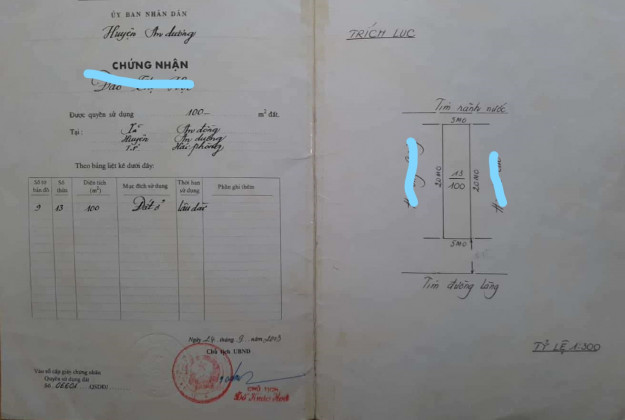 ỦY BAN NHÂN DÂN
Huyện An dương
CHỨNG NHẬN
Được quyền sử dụng 100 m² đất.
Tại : Xã An đồng
Huyện An dương
T.P Hải phòng
Theo bảng liệt kê dưới đây:
Số tờ bản đồ Số thửa Diện tích (m²) Mục đích sử dụng Thời hạn sử dụng Phần ghi thêm
9 13 100 Đất ở lâu dài
Ngày 24 tháng 9 năm 2003
Chủ tịch UBND
Vào sổ cấp giấy chứng nhận
Quyền sử dụng đất
Số 06601 QSDĐ/
TRÍCH LỤC
Tim rãnh nước
5M0
20M0
13
100
20M0
5M0
Tim đường làng
TỶ LỆ 1:300